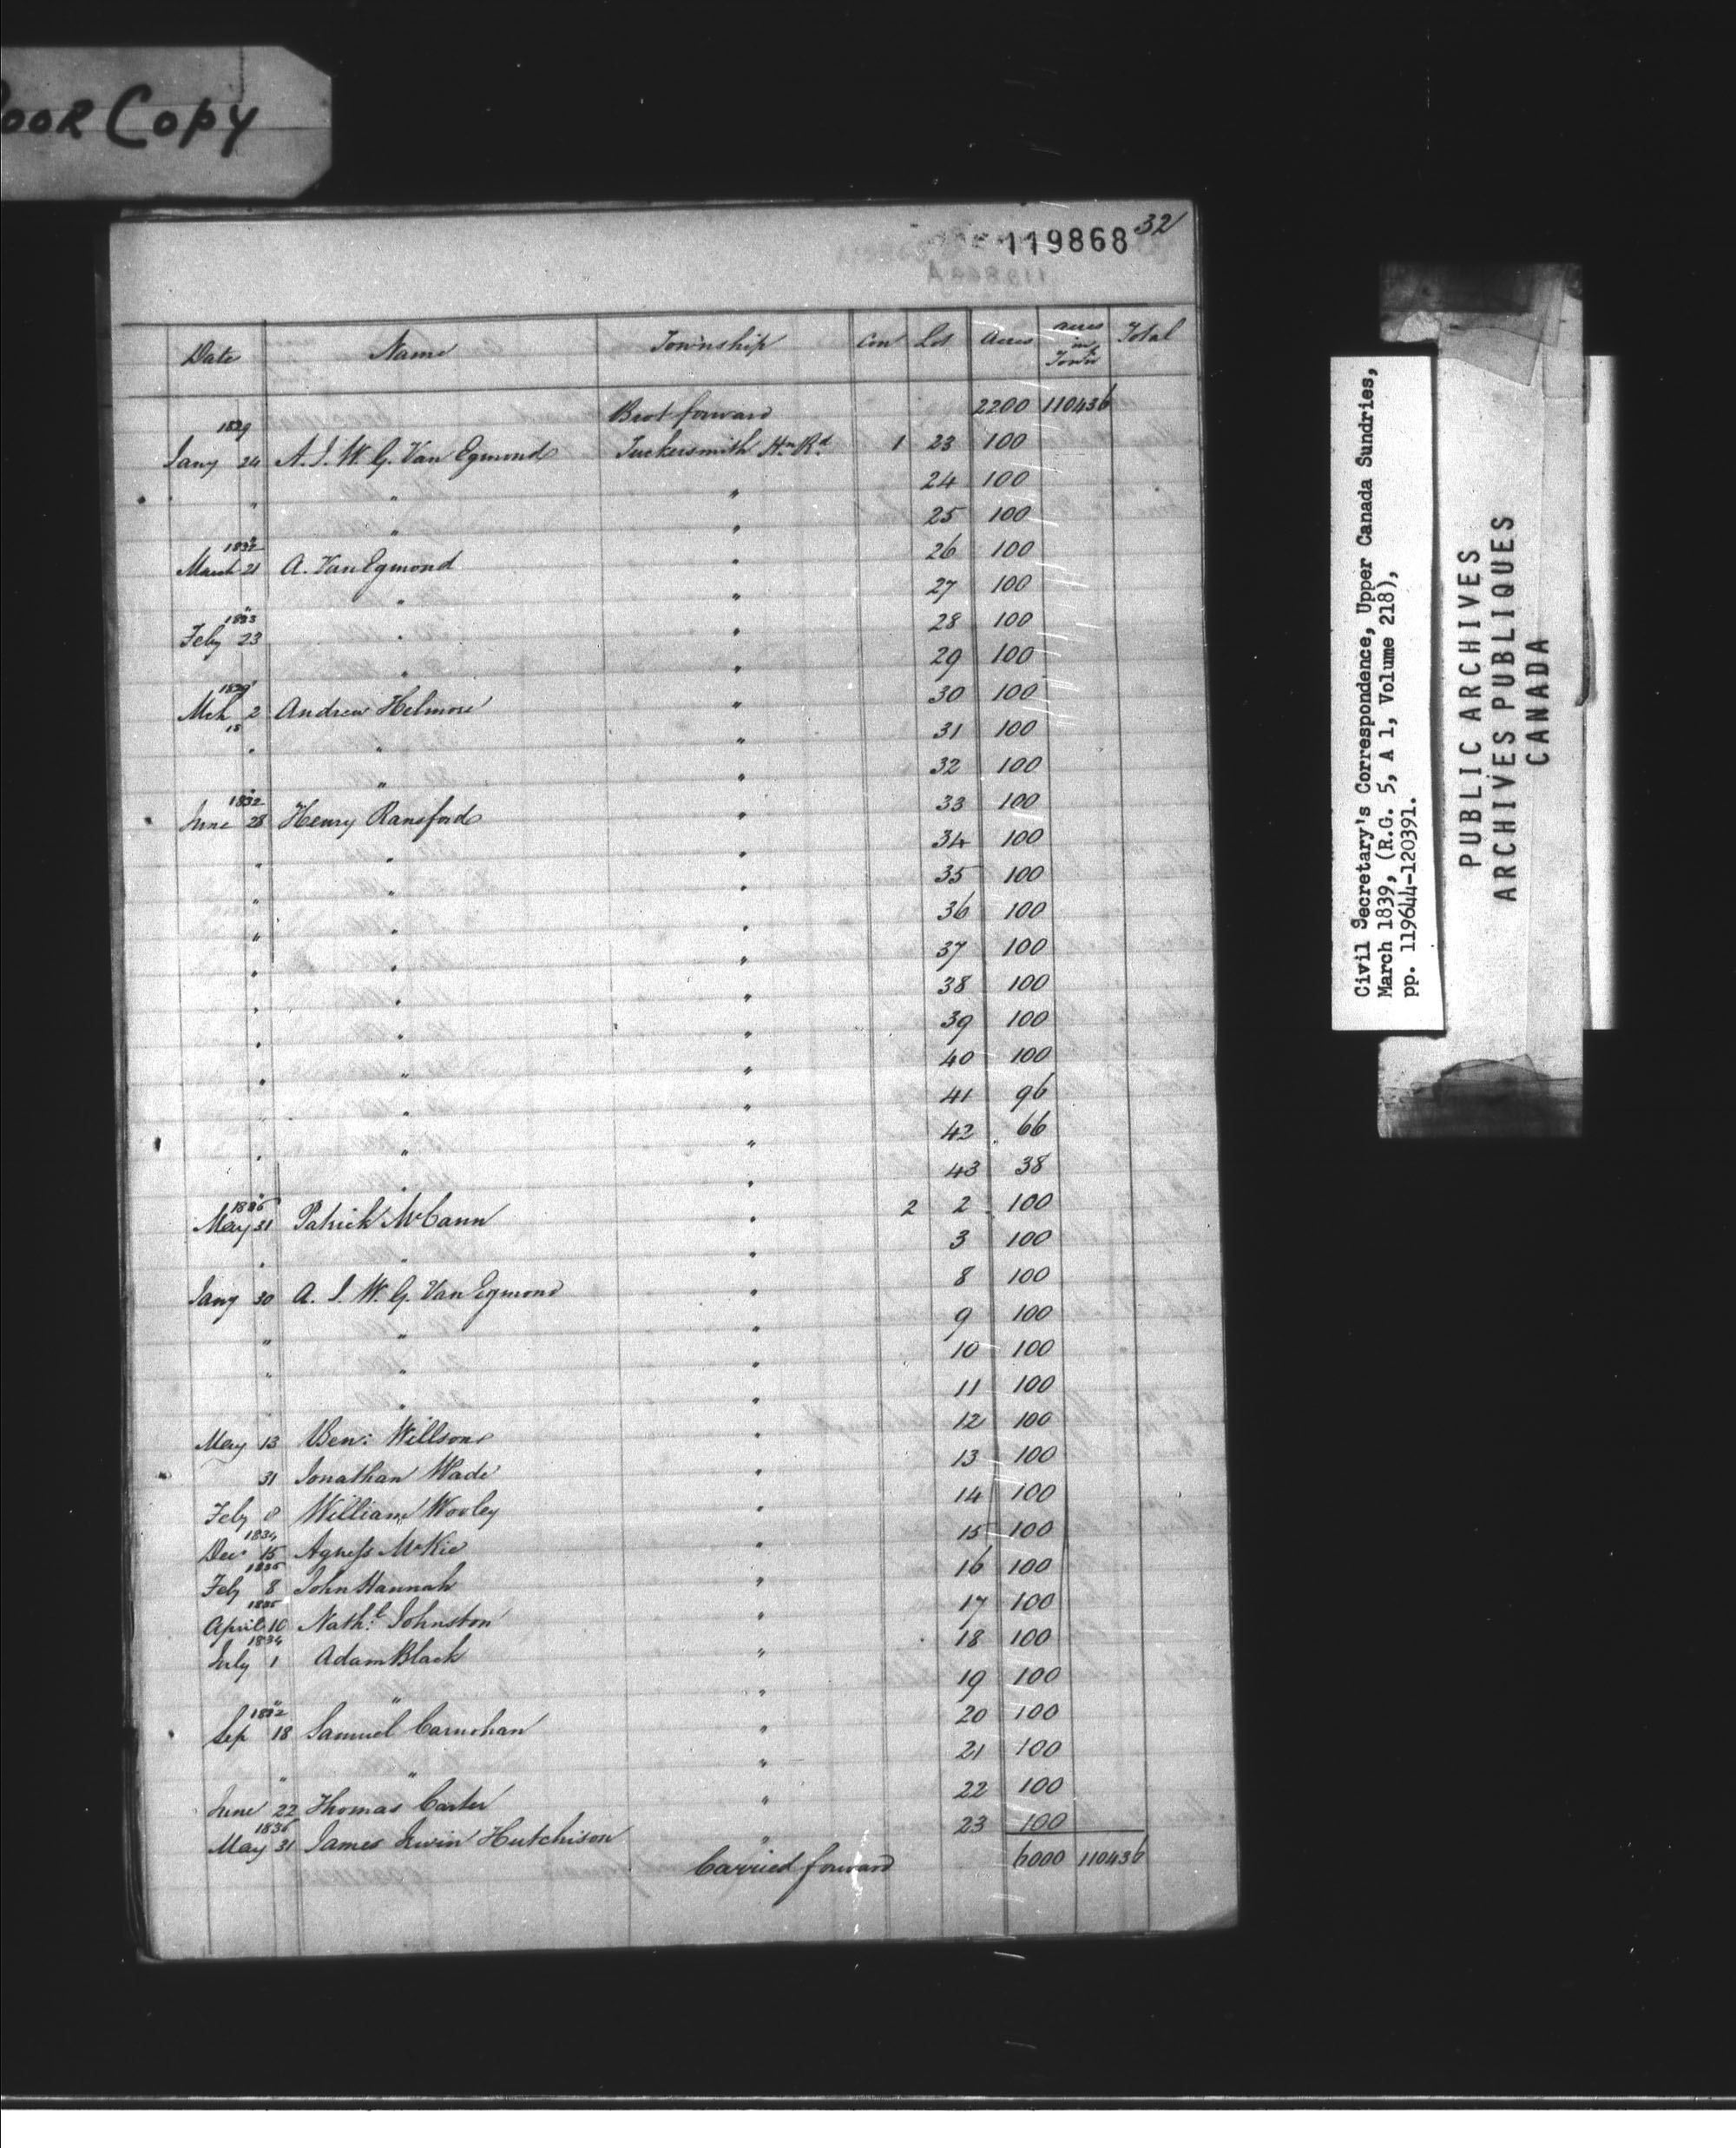 Poor Copy
119868 32
Date Name Township Con Lot Acres acres in Town Total
Brot forward 2200 110436
1829
Jany 24 A. J. W. G. Van Egmond Tuckersmith Hn. Rd. 1 23 100
" " " 24 100
" " 25 100
1832
March 21 A. Van Egmond " 26 100
" " 27 100
1833
Feby 23 " " 28 100
" " 29 100
1829
Mch 2 Andrew Helmore " 30 100
15
" " " 31 100
" " 32 100
1832
June 28 Henry Ransford " 33 100
" " " 34 100
" " " 35 100
" " " 36 100
" " " 37 100
" " " 38 100
" " " 39 100
" " " 40 100
" " 41 96
" " " 42 66
" " 43 38
May 31 Patrick McCann " 2 2 100
" " " 3 100
Jany 30 A. J. W. G. Van Egmond " 8 100
" " " 9 100
" " " 10 100
" " 11 100
May 13 Ben: Willson " 12 100
31 Jonathan Wade " 13 100
Feby 8 William Wooley " 14 100
1834
Dec 15 Agness McKie " 15 100
1835
Feby 8 John Hannah " 16 100
1835
April 10 Nathl. Johnston " 17 100
1834
July 1 Adam Black " 18 100
" " " 19 100
1832
Sep 18 Samuel Carnohan " 20 100
" " " 21 100
June 22 Thomas Carter " 22 100
1836
May 31 James Irwin Hutchison " 23 100
Carried forward 6000 110436
Civil Secretary's Correspondence, Upper Canada Sundries,
March 1839, (R.G. 5, A 1, Volume 218),
pp. 119644-120391.
PUBLIC ARCHIVES
ARCHIVES PUBLIQUES
CANADA